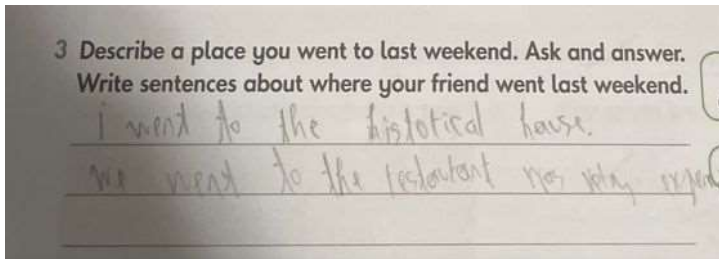 3 Describe a place you went to last weekend. Ask and answer.
Write sentences about where your friend went last weekend.
i went to the historical house.
we went to the restoutant